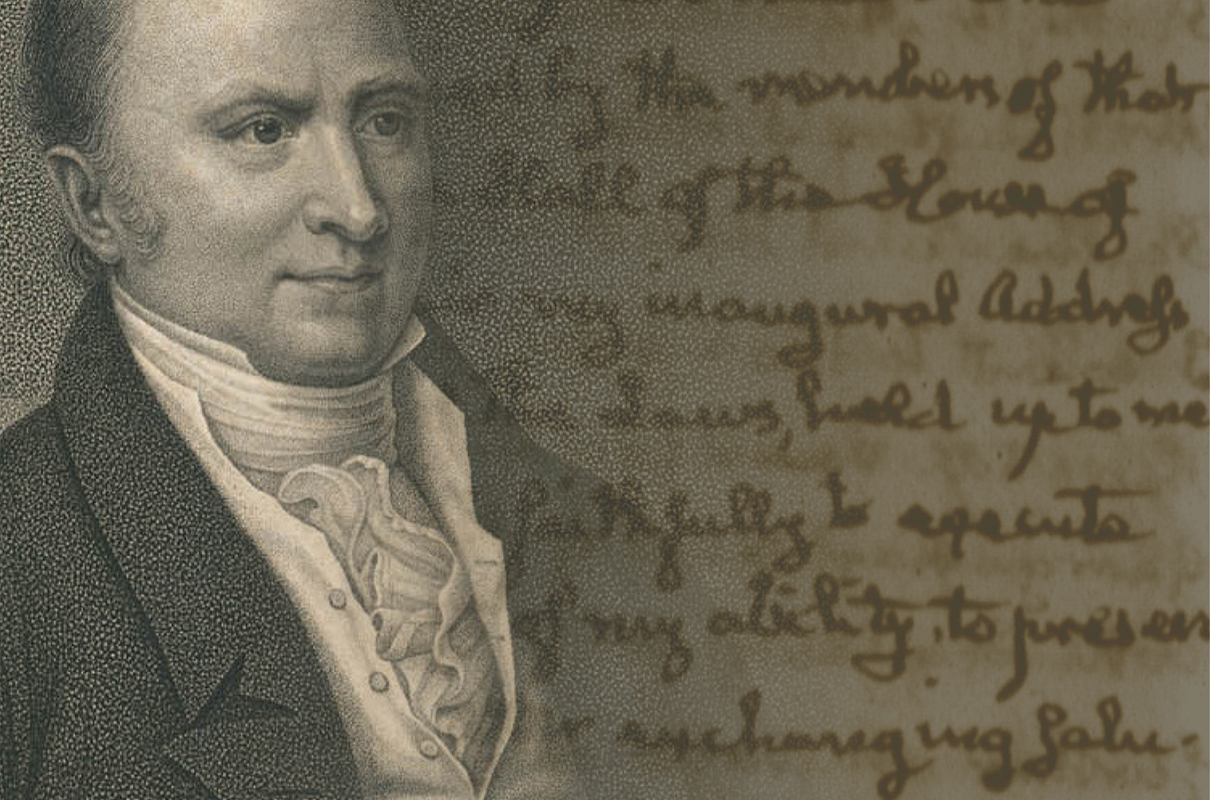 by the members of that
Hall of the House of
my inaugural Address
the Laws, held up to me
faithfully to execute
of my ability, to preser
exchanging Salu-